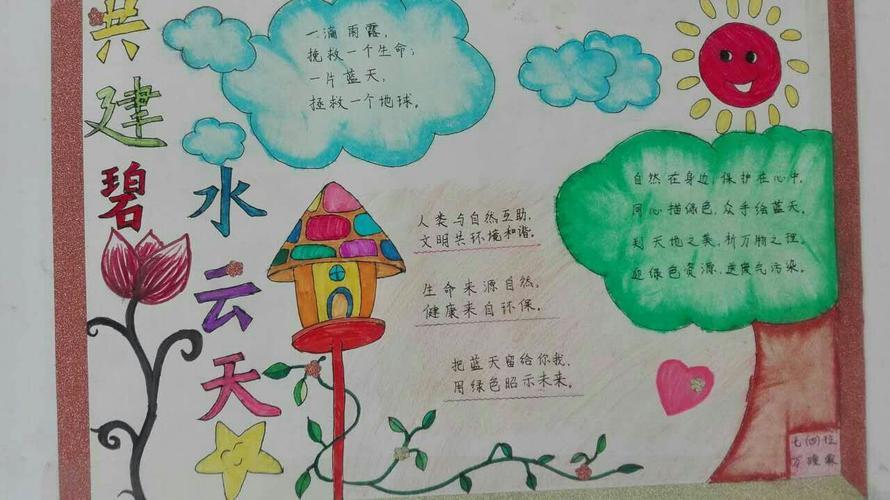 共建碧
水云天
一滴雨露,
挽救一个生命;
一片蓝天,
拯救一个地球。
人类与自然互助,
文明共环境和谐。
生命来源自然,
健康来自环保。
把蓝天留给你我,
用绿色昭示未来。
自然在身边,保护在心中。
同心描绿色,众手绘蓝天。
判天地之美,析万物之理。
迎绿色资源,送废气污染。
七(四)位
万